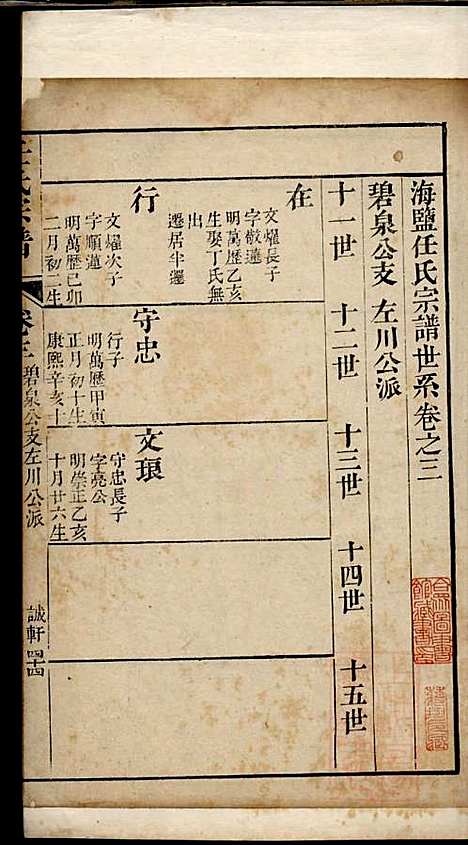 海鹽任氏宗譜世系卷之三
碧泉公支 左川公派
十一世 十二世 十三世 十四世 十五世
在
文燿長子
字敬蓮
明萬歷乙亥
生娶丁氏無
出
遷居半邏
行
文燿次子
字順蓮
明萬歷己卯
二月初一生
守忠
行子
明萬歷甲寅
正月初十生
康熙辛亥十
文琅
守忠長子
字亮公
明崇正乙亥
十月廿六生
任氏宗譜 卷之三 碧泉公支左川公派
誠軒